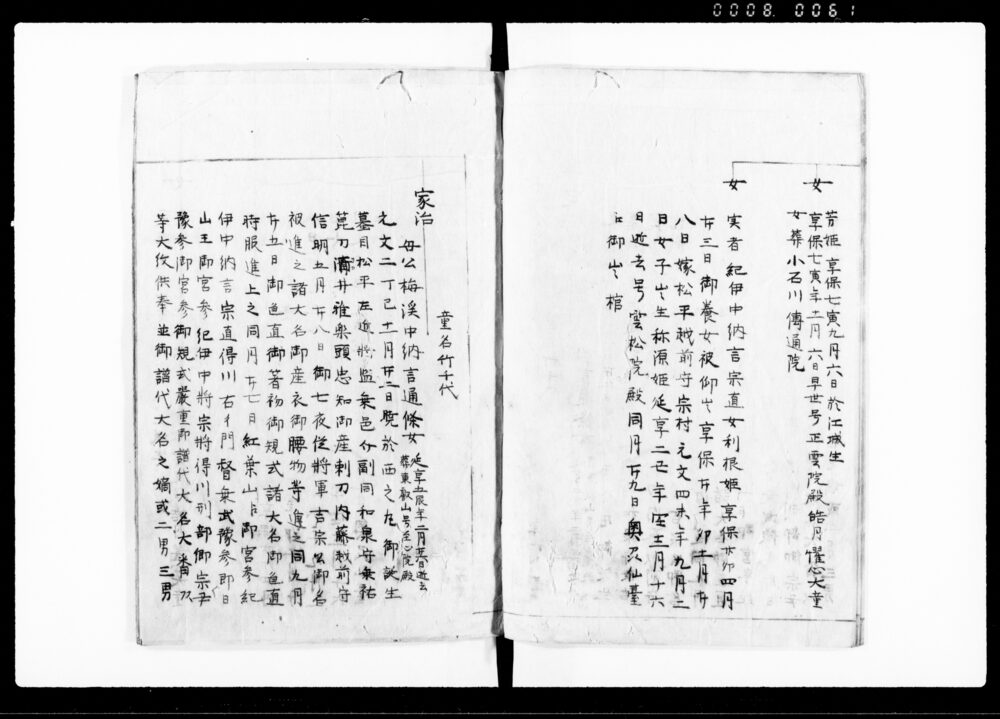 0008 0061
女 芳姫 享保七寅九月六日於江城生
享保七寅年十一月六日早世号正雲院殿皓月
大童
女葬小石川傳通院
女 実者紀伊中納言宗直女利根姫享保
四月
廿三日御養女被仰出享保廿年卯十一月廿
八日嫁松平越前守宗村元文四未年九月二
日女子出生称源姫延享二丑年
十六
日逝去号雲松院殿同月廿九日奥州仙臺
江御出棺
童名竹千代
家治 母公梅渓中納言通條女
延享五辰年二月
逝去
葬東叡山号至心院殿
元文二丁巳十一月廿二日暁於西之丸御誕生
墓目松平左近將監乗邑
副同和泉守乗祐
箆刀酒井雅楽頭忠知御産剃刀内藤越前守
信明五月廿八日御七夜従將軍吉宗公御名
被進之諸大名御産衣御腰物等進之同九月
廿五日御色直御箸初御規式諸大名御色直
時服進上之同月廿七日紅葉山江御宮参紀
伊中納言宗直得川右
門督
武豫参即日
山王御宮参紀伊中將宗將得川刑部卿宗尹
豫参御宮参御規式嚴重御譜代大名大番
等大役供奉並御譜代大名之嫡或二男三男